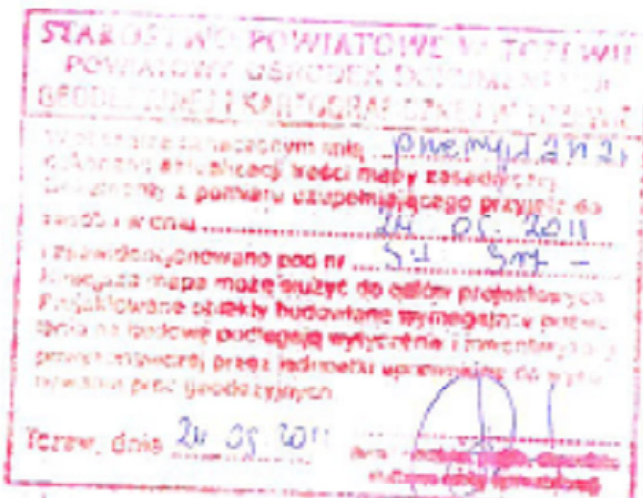 STAROSTWO POWIATOWE W TCZEWIE
POWIATOWY OŚRODEK DOKUMENTACJI
GEODEZYJNEJ I KARTOGRAFICZNEJ W TCZEWIE
oznaczonym
dokonano aktualizacji treści mapy zasadniczej
Dokumenty z pomiaru uzupełniającego przyjęto do
zasobu w dniu 24 05. 2011
i zaewidencjonowano pod nr
Niniejsza mapa może służyć do celów projektowych
Projektowane obiekty budowlane wymagające pozwo-
lenia na budowę podlegają wytyczeniu i inwentaryzacji
powykonawczej przez jednostki uprawnione do wyko-
nywania prac geodezyjnych
Tczew, dnia 24 05 2011